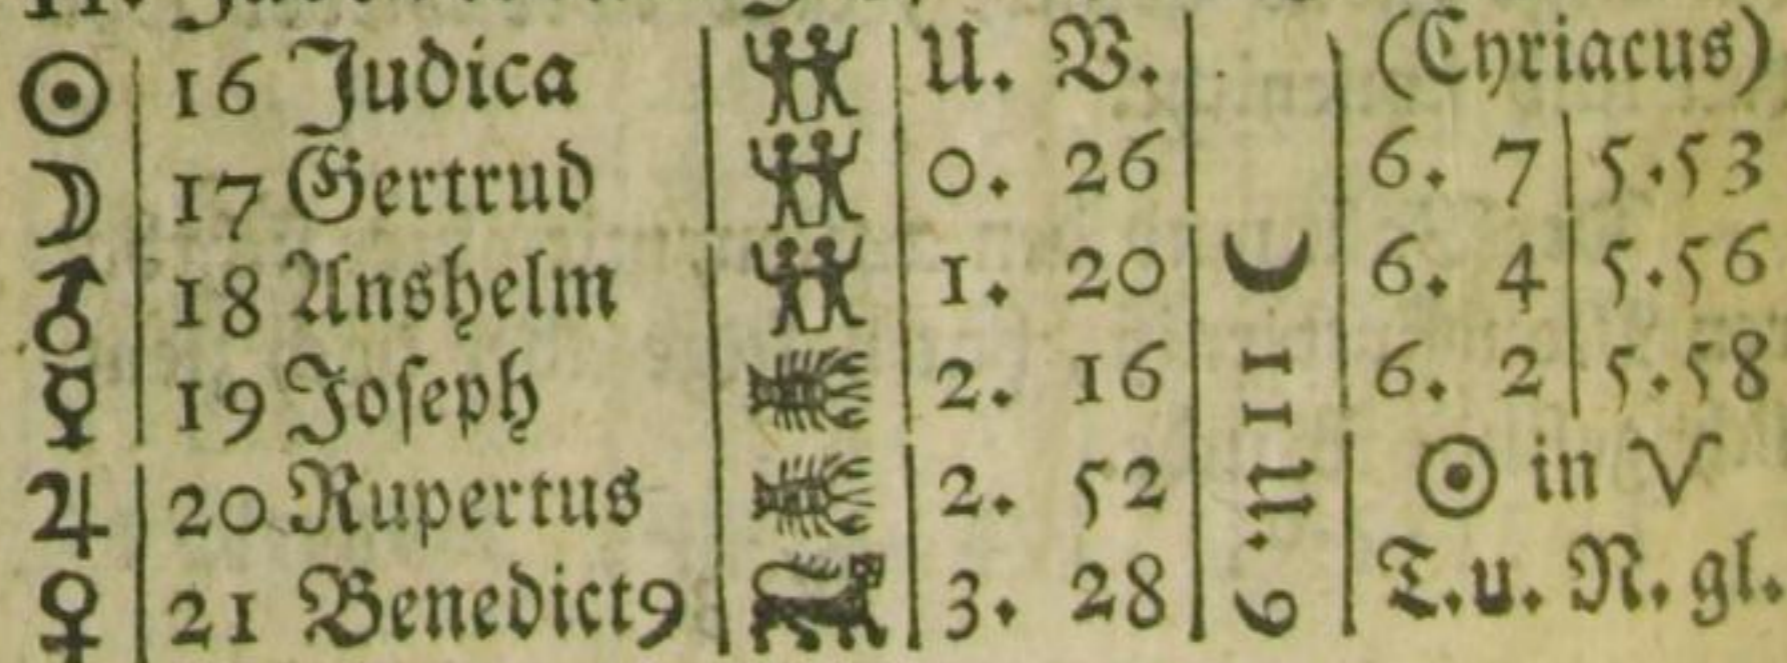 ☉ 16 Judica U. V. (Cyriacus)
☽ 17 Gertrud 0. 26 6. 7 5.53
♂ 18 Anshelm 1. 20 6. 4 5.56
☿ 19 Joseph 2. 16 6. 2 5.58
♃ 20 Rupertus 2. 52 ☉ in ♈
♀ 21 Benedict9 3. 28 T.u. N. gl.
☾ 11 U. 9